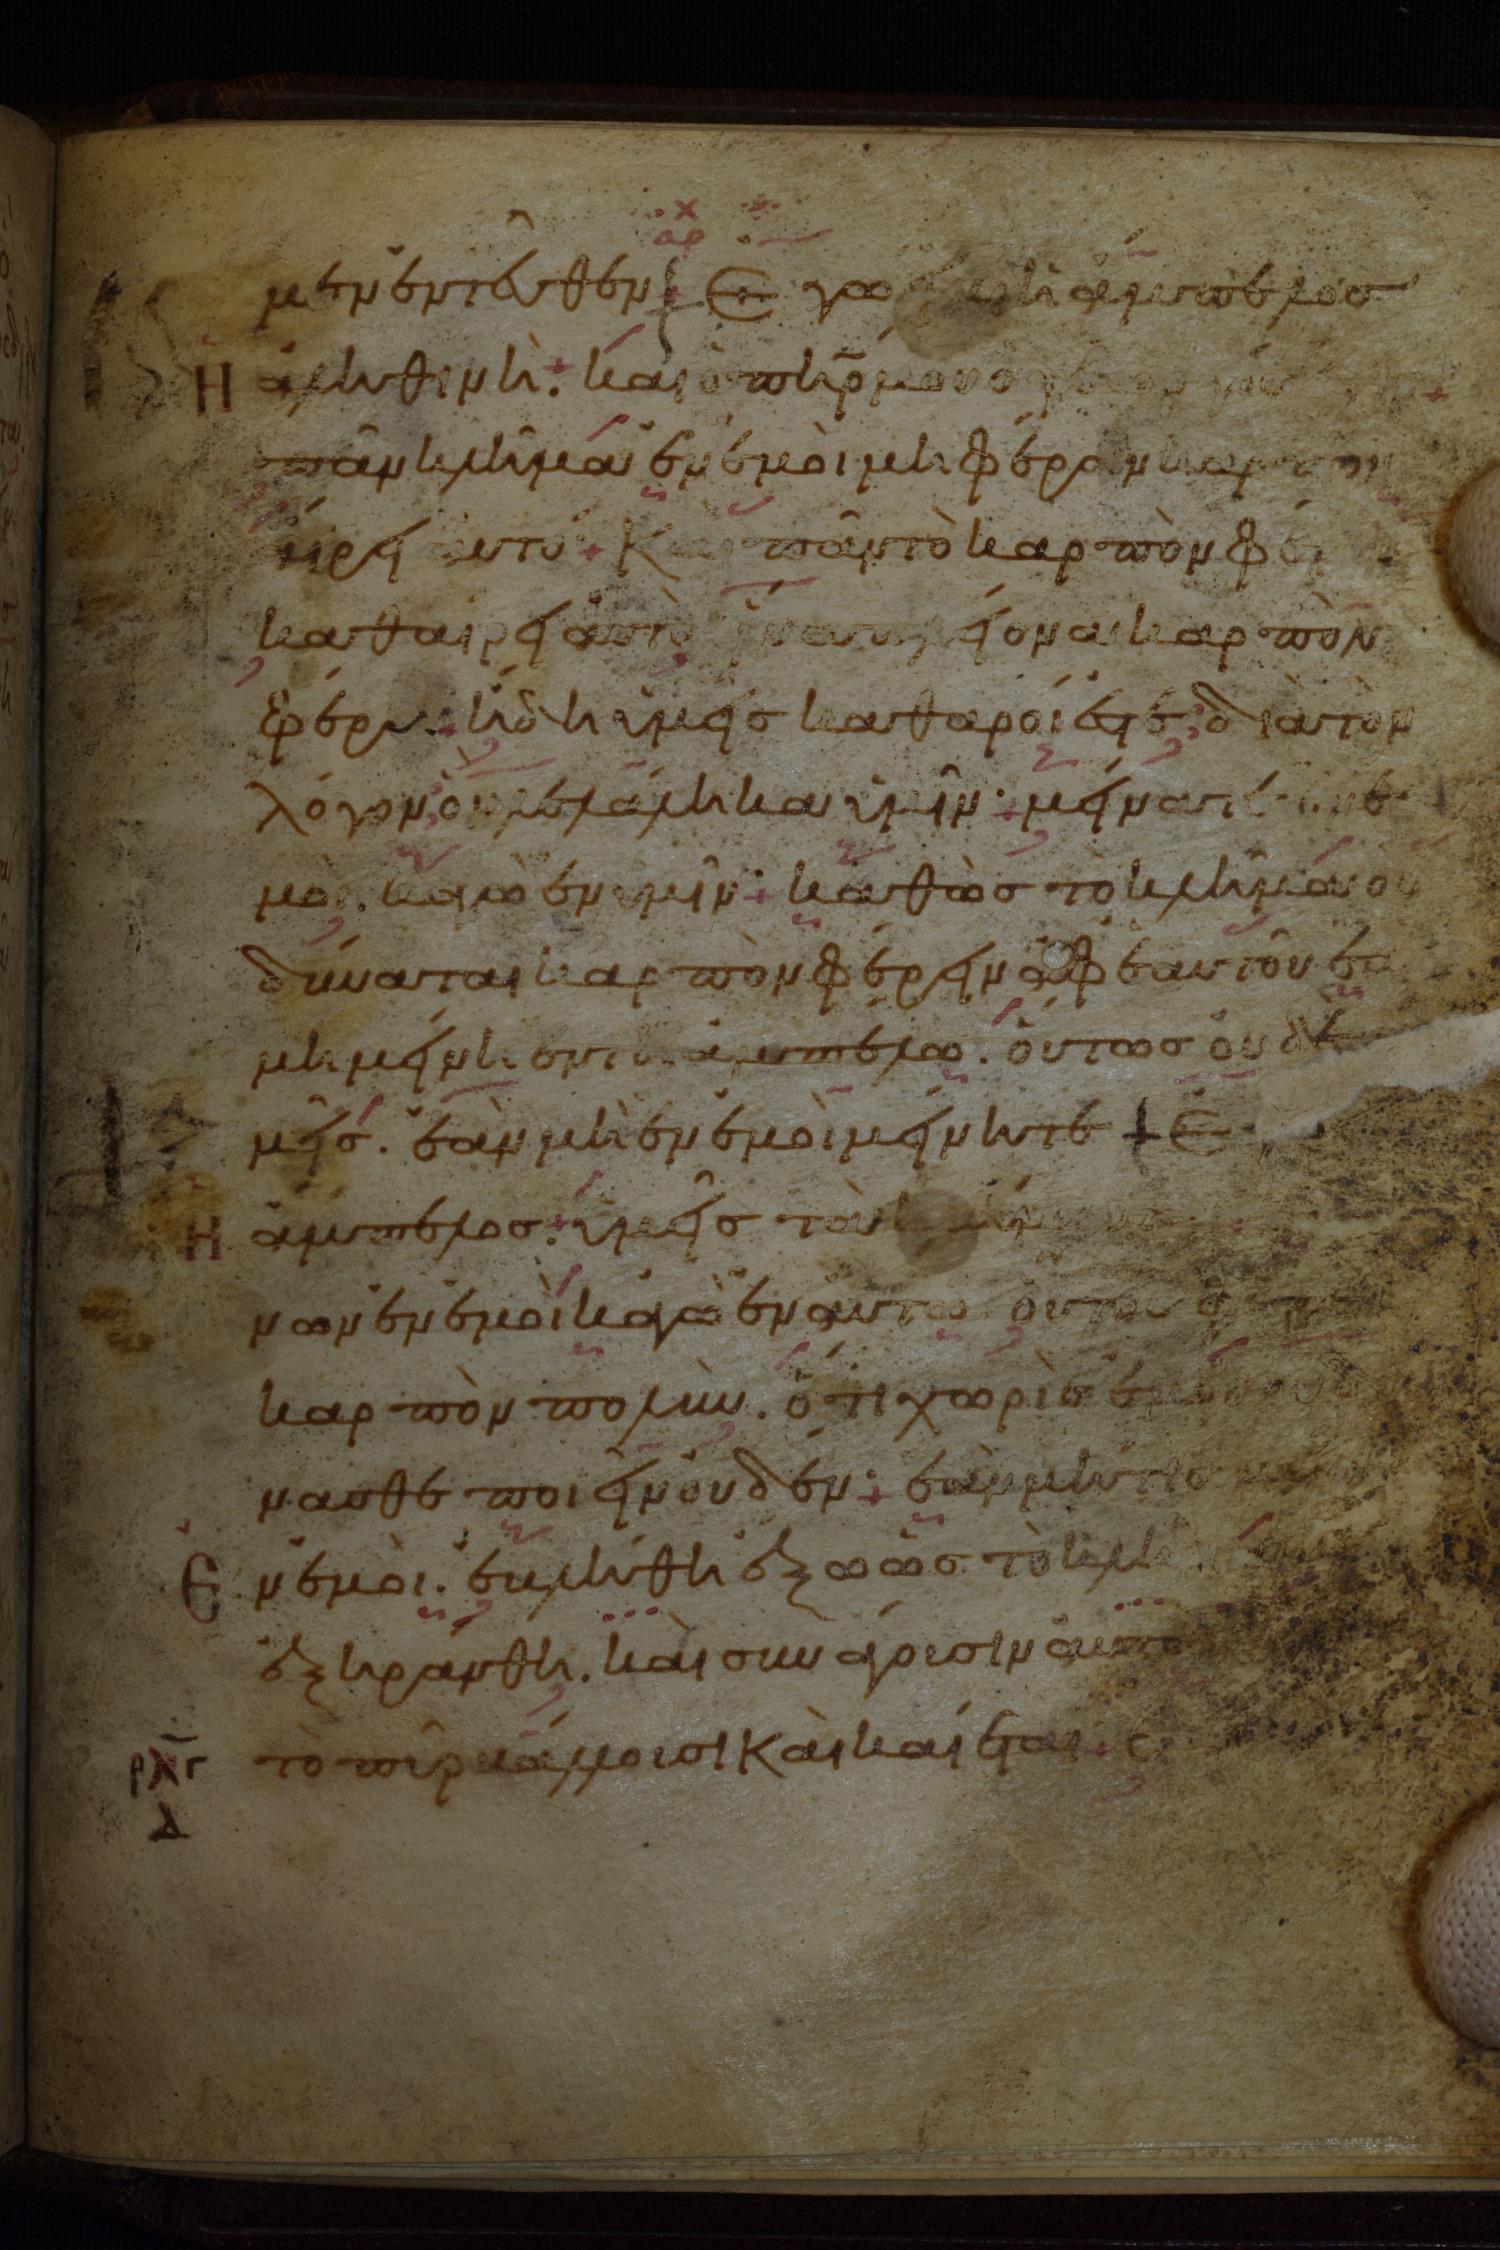 μεν ἐντεῦθεν Ἐγώ εἰμι ἡ ἄμπελος
Ἡ ἀληθινὴ. καὶ ὁ πη̃ρ μου ὁ γεωργός
πᾶν κλῆμα ἐν ἐμοὶ μὴ φέρον καρπὸν
αἴρει αὐτό Καὶ πᾶν τὸ καρπὸν φέ
καθαίρει αὐτὸ ἵνα πλείονα καρπὸν
φέρη. ἤδη ὑμεῖς καθαροί ἐστε διὰ τὸν
λόγον ὃν λελάληκα ὑμῖν· μείνατε ἐν ἐ
μοί. καγὼ ἐν ὑμῖν· καθὼς τὸ κλῆμα οὐ
δύναται καρπὸν φέρειν ἀφ ἑαυτοῦ ἐὰ
μὴ μείνη ἐν τῆ ἀμπέλω. οὕτως οὐδὲ
μεῖς. ἐὰν μὴ ἐν ἐμοὶ μείνητε Ἐ
Ἡ ἄμπελος. ὑμεῖς τὰ κλήματα
νων ἐν ἐμοὶ καγὼ ἐν αὐτῶ οὗτος φέρει
καρπὸν πολὺν. ὅτι χωρὶς ἐμοῦ οὐ δύ
νασθε ποιεῖν οὐδέν· ἐὰν μή τις μείνη
Ε ν ἐμοὶ. ἐβλήθη ἔξω ὡς τὸ κλῆμα
ἐξηράνθη. καὶ συνάγουσιν αὐτὸ
ρλγ τὸ πῦρ βάλλουσι Καὶ καίεται
Δ